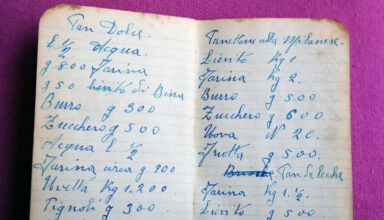 Pan Dolci
L ½ Acqua.
g 800 Farina
g 50 lievito di Birra
Burro g 300
Zucchero g 500
Acqua L ½
Farina circa g 900
Uvetta Kg 1.200
Pignoli g 300
Panettone alla Milanese.
Lievito Kg 1
Farina Kg 2.
Burro g 500
Zucchero g 600
Uova N° 20.
Frutta g 500.
Pan da
Farina Kg 1.½
Lievito g 500